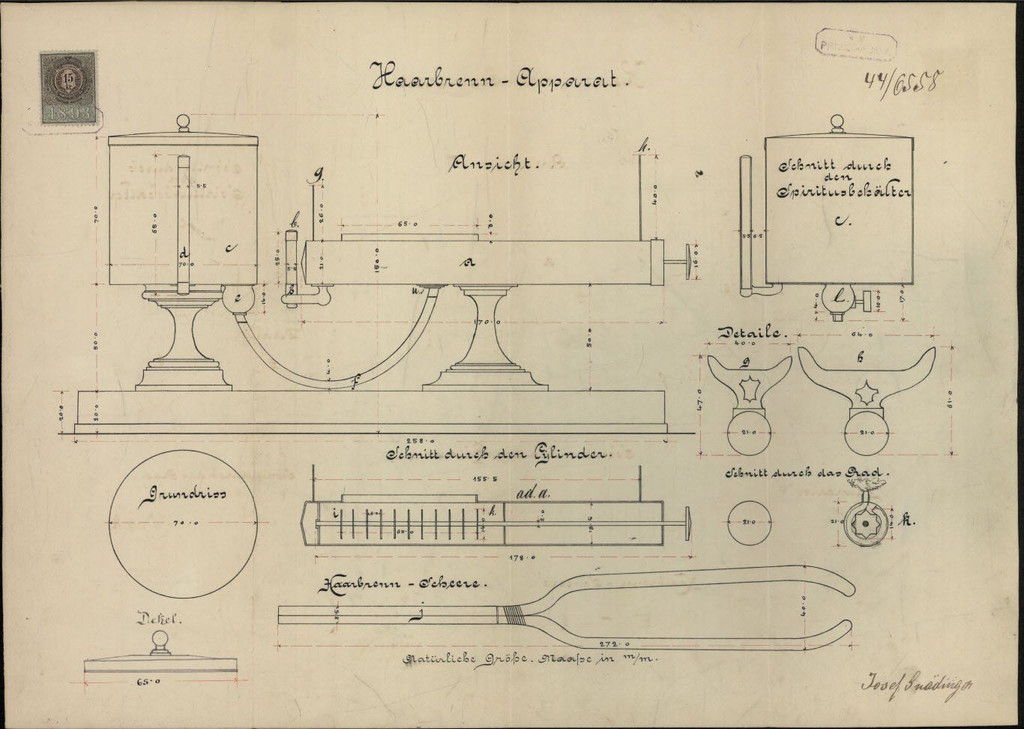 Haarbrenn - Apparat.
44/6558
15
1898
Ansicht.
Schnitt durch
den
Spiritusbehälter
c.
g.
h.
a
b.
d
c
e
f
65.0
70.0
170.0
50.0
20.0
258.0
Detaile.
40.0
64.0
g
h
47.0
61.0
21.0
21.0
Schnitt durch den Cylinder.
155.5
ad. a.
i
k.
178.0
Schnitt durch das Rad.
21.0
21.0
k.
Grundriss
70.0
Haarbrenn - Scheere.
j
40.0
272.0
Natürliche Größe. Maaße in m/m.
Dekel.
65.0
Josef